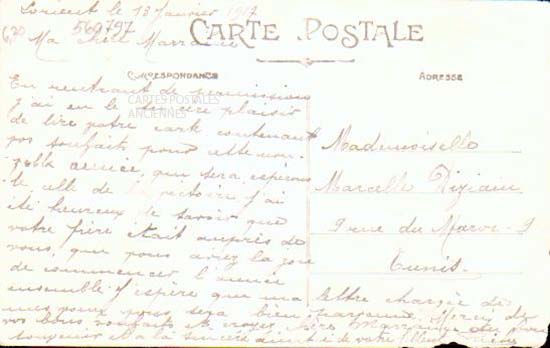 Lorient le 13 Janvier 1917
560797
Ma chère Marraine
CARTE POSTALE
CORRESPONDANCE
ADRESSE
CARTES POSTALES
ANCIENNES
En rentrant de permission
j'ai eu le sincère plaisir
de lire votre carte contenant
vos souhaits pour cette nou-
velle année, que sera espérons
le celle de la victoire, j'ai
été heureux de savoir que
votre frère était auprès de
vous, que vous aviez la joie
de commencer l'année
ensemble. J'espère que ma
lettre chargée de
mes vœux vous sera bien Merci de
vos bons souhaits et croyez chère Marraine au
souvenir et à la sincère amitié de votre filleul
Mademoiselle
Marcelle
9 rue du Maroc 9
Tunis